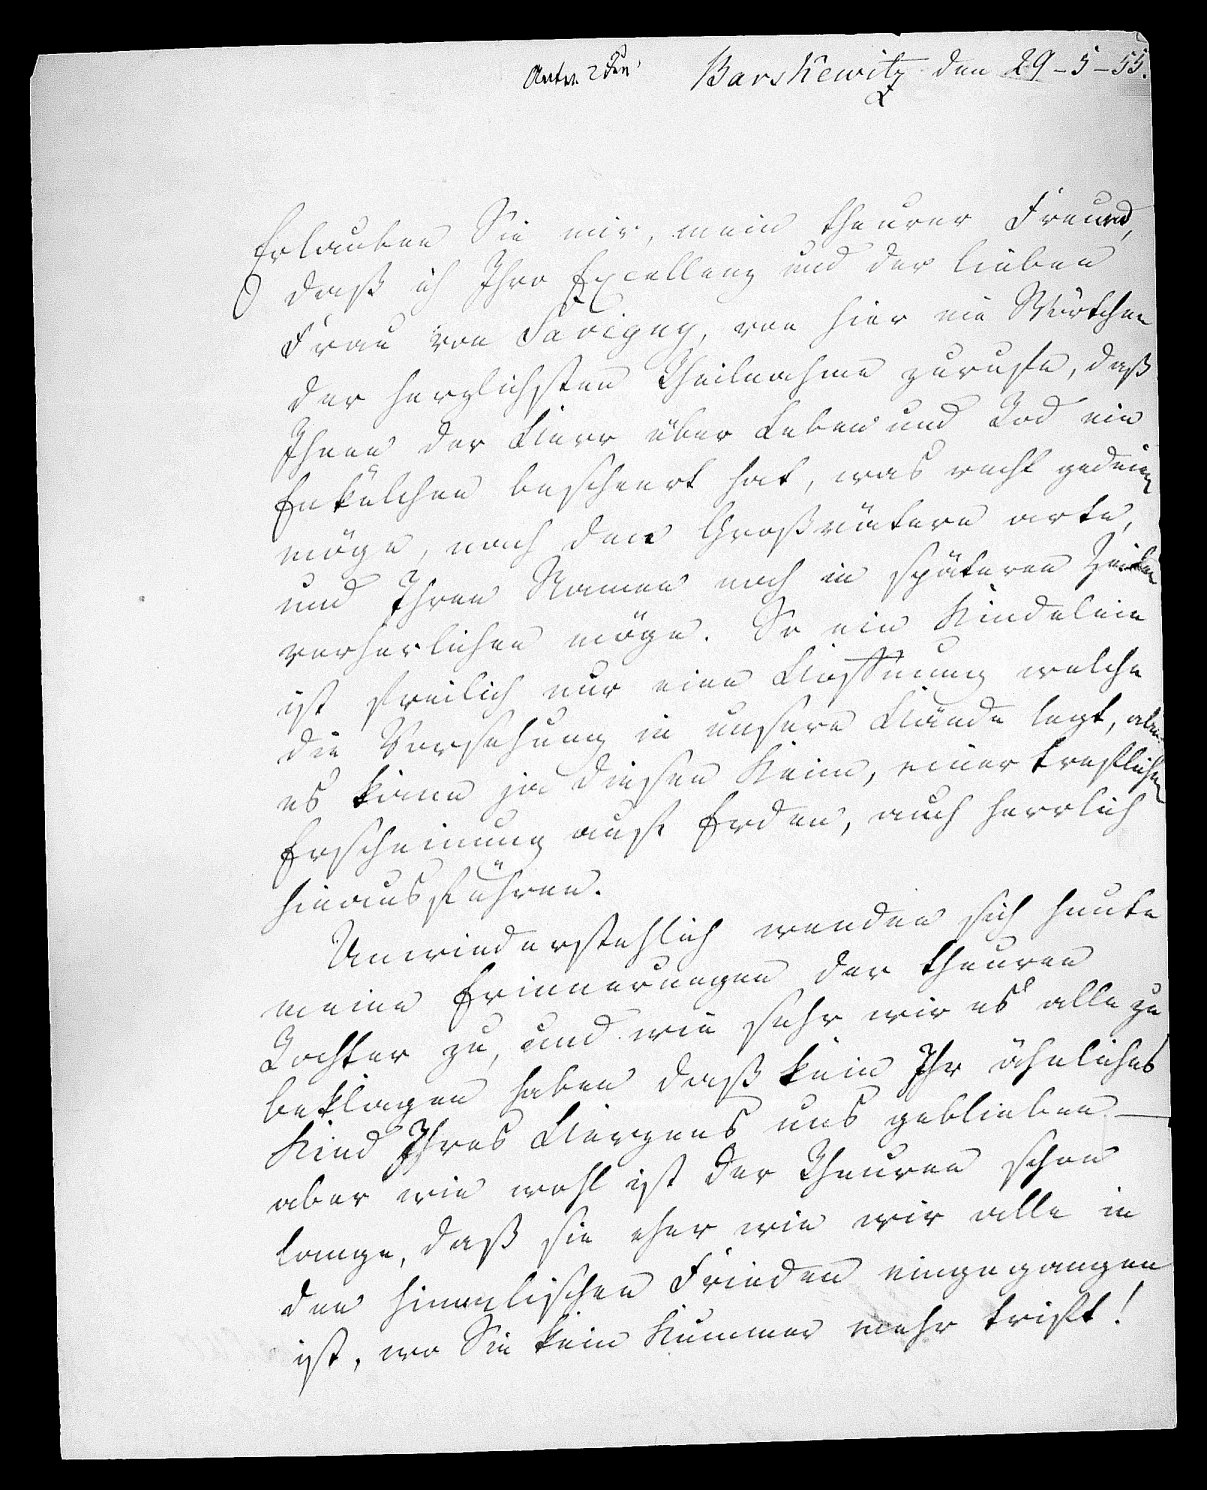 Antw. 2 Jun
Barskewitz den 29-5-55.
Erlauben Sie mir, mein theurer Freund,
daß ich Ihro Excellenz und der lieben
Frau von Savigny, von hier ein Wörtchen
der herzlichsten Theilnahme zurufe, daß
Ihnen der Herr über Leben und Tod ein
Enkelchen bescheert hat, was recht gedeien
möge, nach den Großvätern arte,
und Ihren Namen noch in späteren Zeiten
verherlichen möge. So ein Kindelein
ist freilich nur eine Hoffnung welche
die Vorsehung in unsere Hände legt, aber
es kann ja diesen Keim, einer treflichen
Erscheinung auf Erden, auch herrlich
hinausführen.
Unwiederstehlich wenden sich heute
meine Erinnerungen der theuren
Tochter zu, und wie sehr wir es alle zu
beklagen haben daß kein Ihr ähnliches
Kind Ihres Herzens uns geblieben —
aber wie wohl ist der Theuren schon
lange, daß sie eher wie wir alle in
den himmlischen Frieden eingegangen
ist, wo Sie kein Kummer mehr trift!